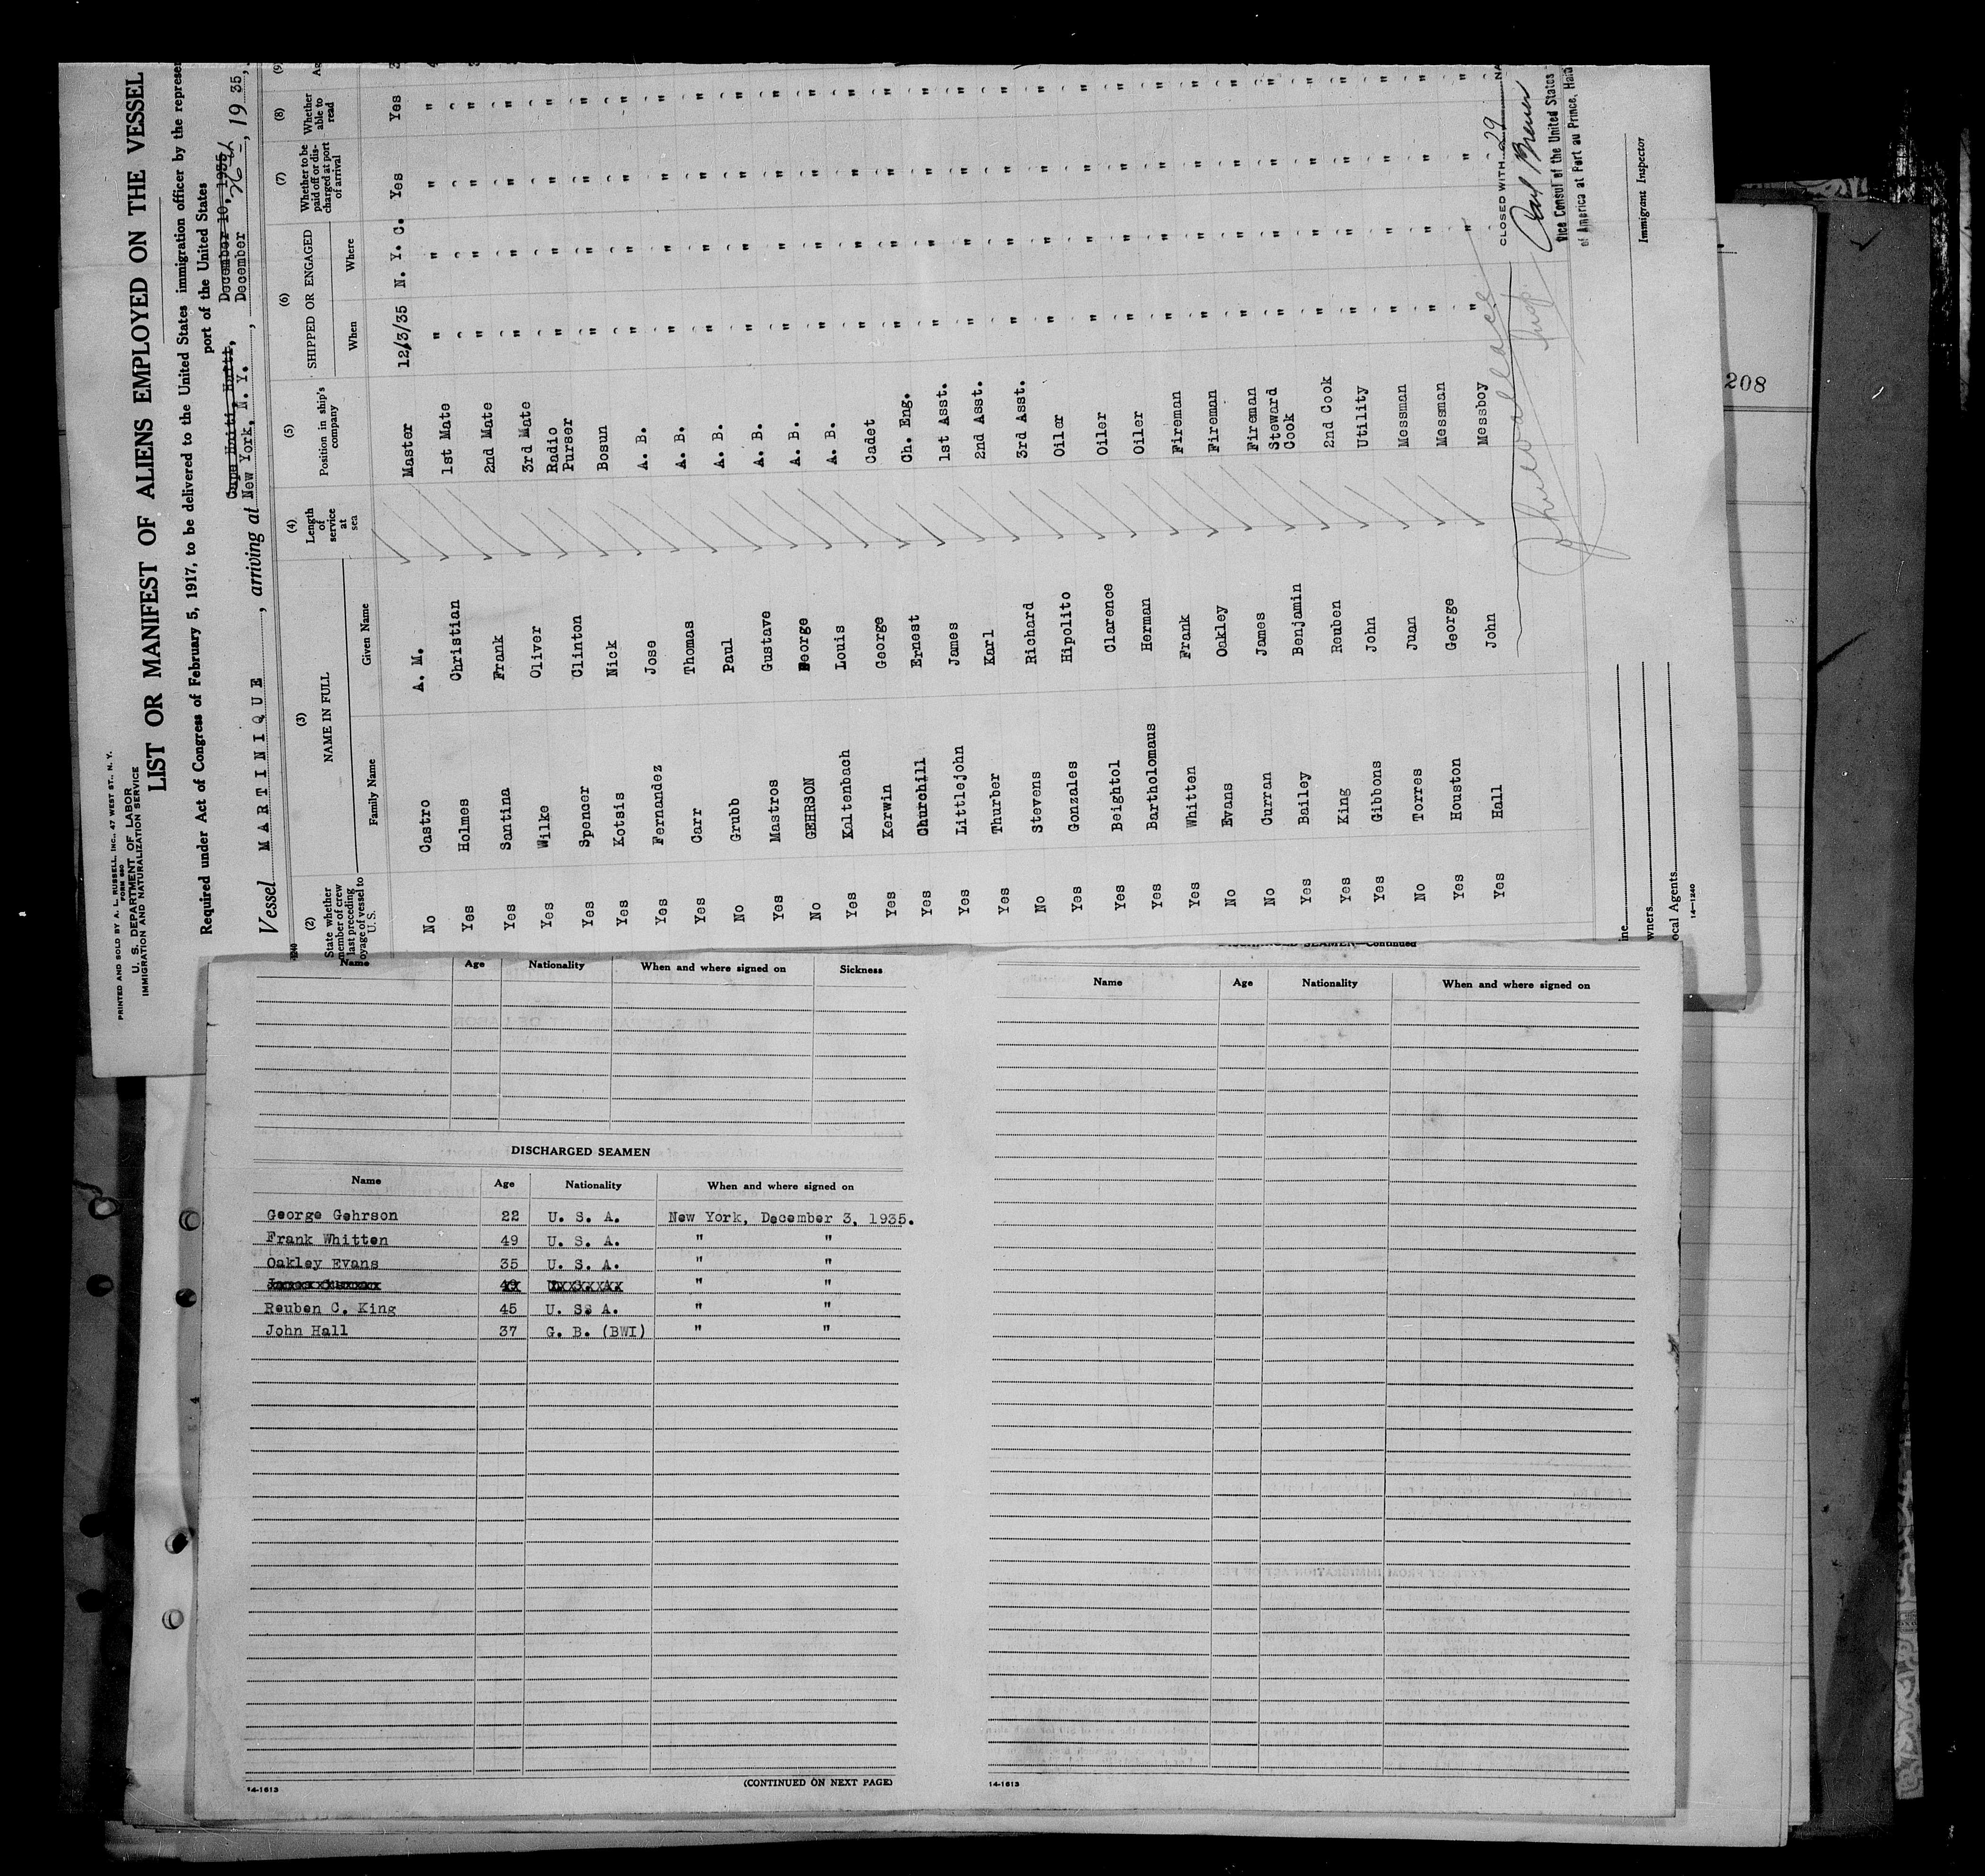 PRINTED AND SOLD BY A. L. RUSSELL, INC., 47 WEST ST., N. Y.
FORM 680
U. S. DEPARTMENT OF LABOR
IMMIGRATION AND NATURALIZATION SERVICE
LIST OR MANIFEST OF ALIENS EMPLOYED ON THE VESSEL
Required under Act of Congress of February 5, 1917, to be delivered to the United States immigration officer by the represen
port of the United States
Cape Haiti, Haiti, December 10, 1935
Vessel MARTINIQUE, arriving at New York, N. Y., December 26th, 1935,
(2) (3) (4) (5) (6) (7) (8) (9)
State whether member of crew last preceding voyage of vessel to U. S. NAME IN FULL Length of service at sea Position in ship's company SHIPPED OR ENGAGED Whether to be paid off or discharged at port of arrival Whether able to read Ag
Family Name Given Name When Where
No Castro A. M. Master 12/3/35 N. Y. C. Yes Yes 3
Yes Holmes Christian 1st Mate " " " " 4
Yes Santina Frank 2nd Mate " " " " 3
Yes Wilke Oliver 3rd Mate " " " "
Yes Spencer Clinton Radio Purser " " " "
Yes Kotsis Nick Bosun " " " "
Yes Fernandez Jose A. B. " " " "
Yes Carr Thomas A. B. " " " "
No Grubb Paul A. B. " " " "
Yes Mastros Gustave A. B. " " " "
No GEHRSON George A. B. " " " "
Yes Kaltenbach Louis A. B. " " " "
Yes Kerwin George Cadet " " " "
Yes Churchill Ernest Ch. Eng. " " " "
Yes Littlejohn James 1st Asst. " " " "
Yes Thurber Karl 2nd Asst. " " " "
No Stevens Richard 3rd Asst. " " " "
Yes Gonzales Hipolito Oiler " " " "
Yes Beightol Clarence Oiler " " " "
Yes Bartholomaus Herman Oiler " " " "
Yes Whitten Frank Fireman " " " "
No Evans Oakley Fireman " " " "
No Curran James Fireman " " " "
Yes Bailey Benjamin Steward Cook " " " "
Yes King Reuben 2nd Cook " " " "
Yes Gibbons John Utility " " " "
No Torres Juan Messman " " " "
Yes Houston George Messman " " " "
Yes Hall John Messboy " " " "
CLOSED WITH 29 NA
Vice Consul of the United States
of America at Port au Prince, Haiti
Immigrant Inspector
ine
wners
ocal Agents
14—1240
208
Name Age Nationality When and where signed on Sickness
DISCHARGED SEAMEN
Name Age Nationality When and where signed on
George Gehrson 22 U. S. A. New York, December 3, 1935.
Frank Whitten 49 U. S. A. " "
Oakley Evans 35 U. S. A. " "
" "
Reuben C. King 45 U. SS A. " "
John Hall 37 G. B. (BWI) " "
14-1613
(CONTINUED ON NEXT PAGE)
DISCHARGED SEAMEN—Continued
Name Age Nationality When and where signed on
14-1613